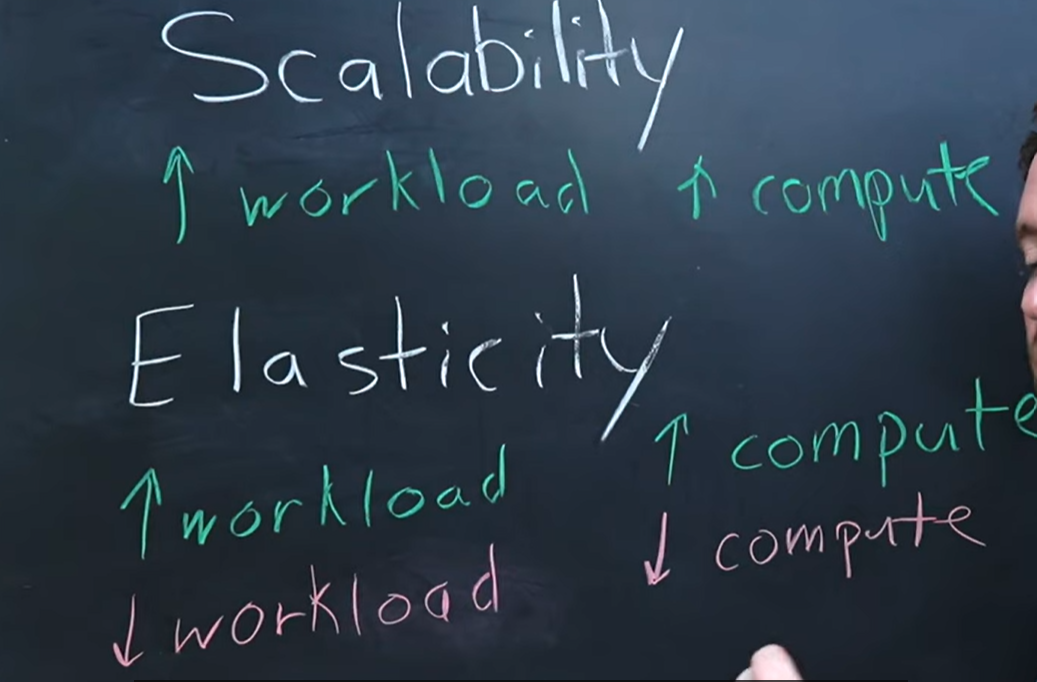 Scalability
↑ workload ↑ compute
Elasticity
↑ workload ↑ compute
↓ workload ↓ compute